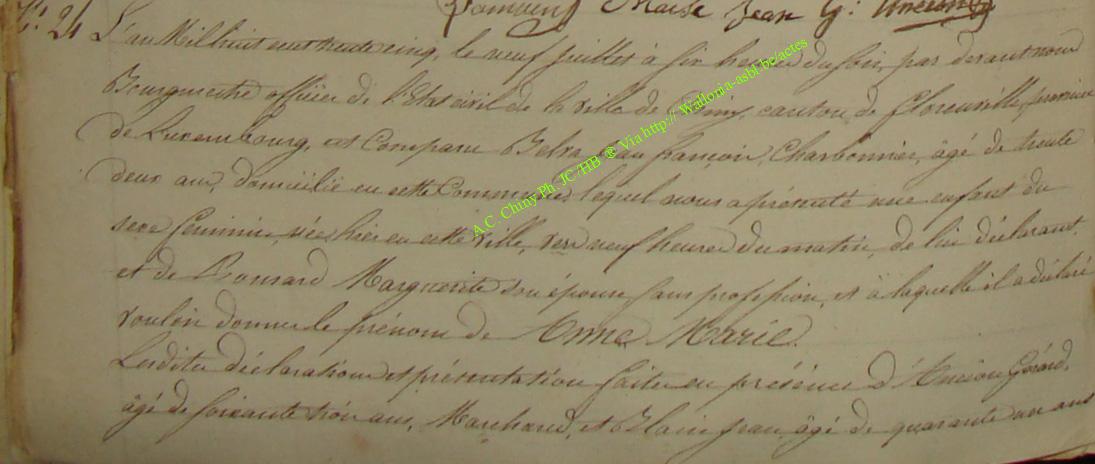 Jean G: Ancion
N: 21 L'an Mil huit cent trente cinq, le neuf juillet à six heures du soir, par devant nous
Bourgmestre officier de l'Etat civil de la ville de Chiny, canton de Florenville, province
de Luxembourg, est Comparu Jean françois, Charbonnier, âgé de trente
deux ans, domicilié en cette Commune, lequel nous a présenté une enfant du
sexe féminin, née hier en cette ville, vers neuf heures du matin, de lui déclarant
et de Ronsard Marguerite son épouse sans profession, et à laquelle il a déclaré
vouloir donner le prénom de Anne Marie.
Lesdites déclaration et présentation faites en présence d'Ancion Gérard,
âgé de soixante trois ans, Marchand, et Blaise Jean, âgé de quarante un ans
A.C. Chiny Ph. JC /HB ® Via http:// Wallonia-asbl-be/actes